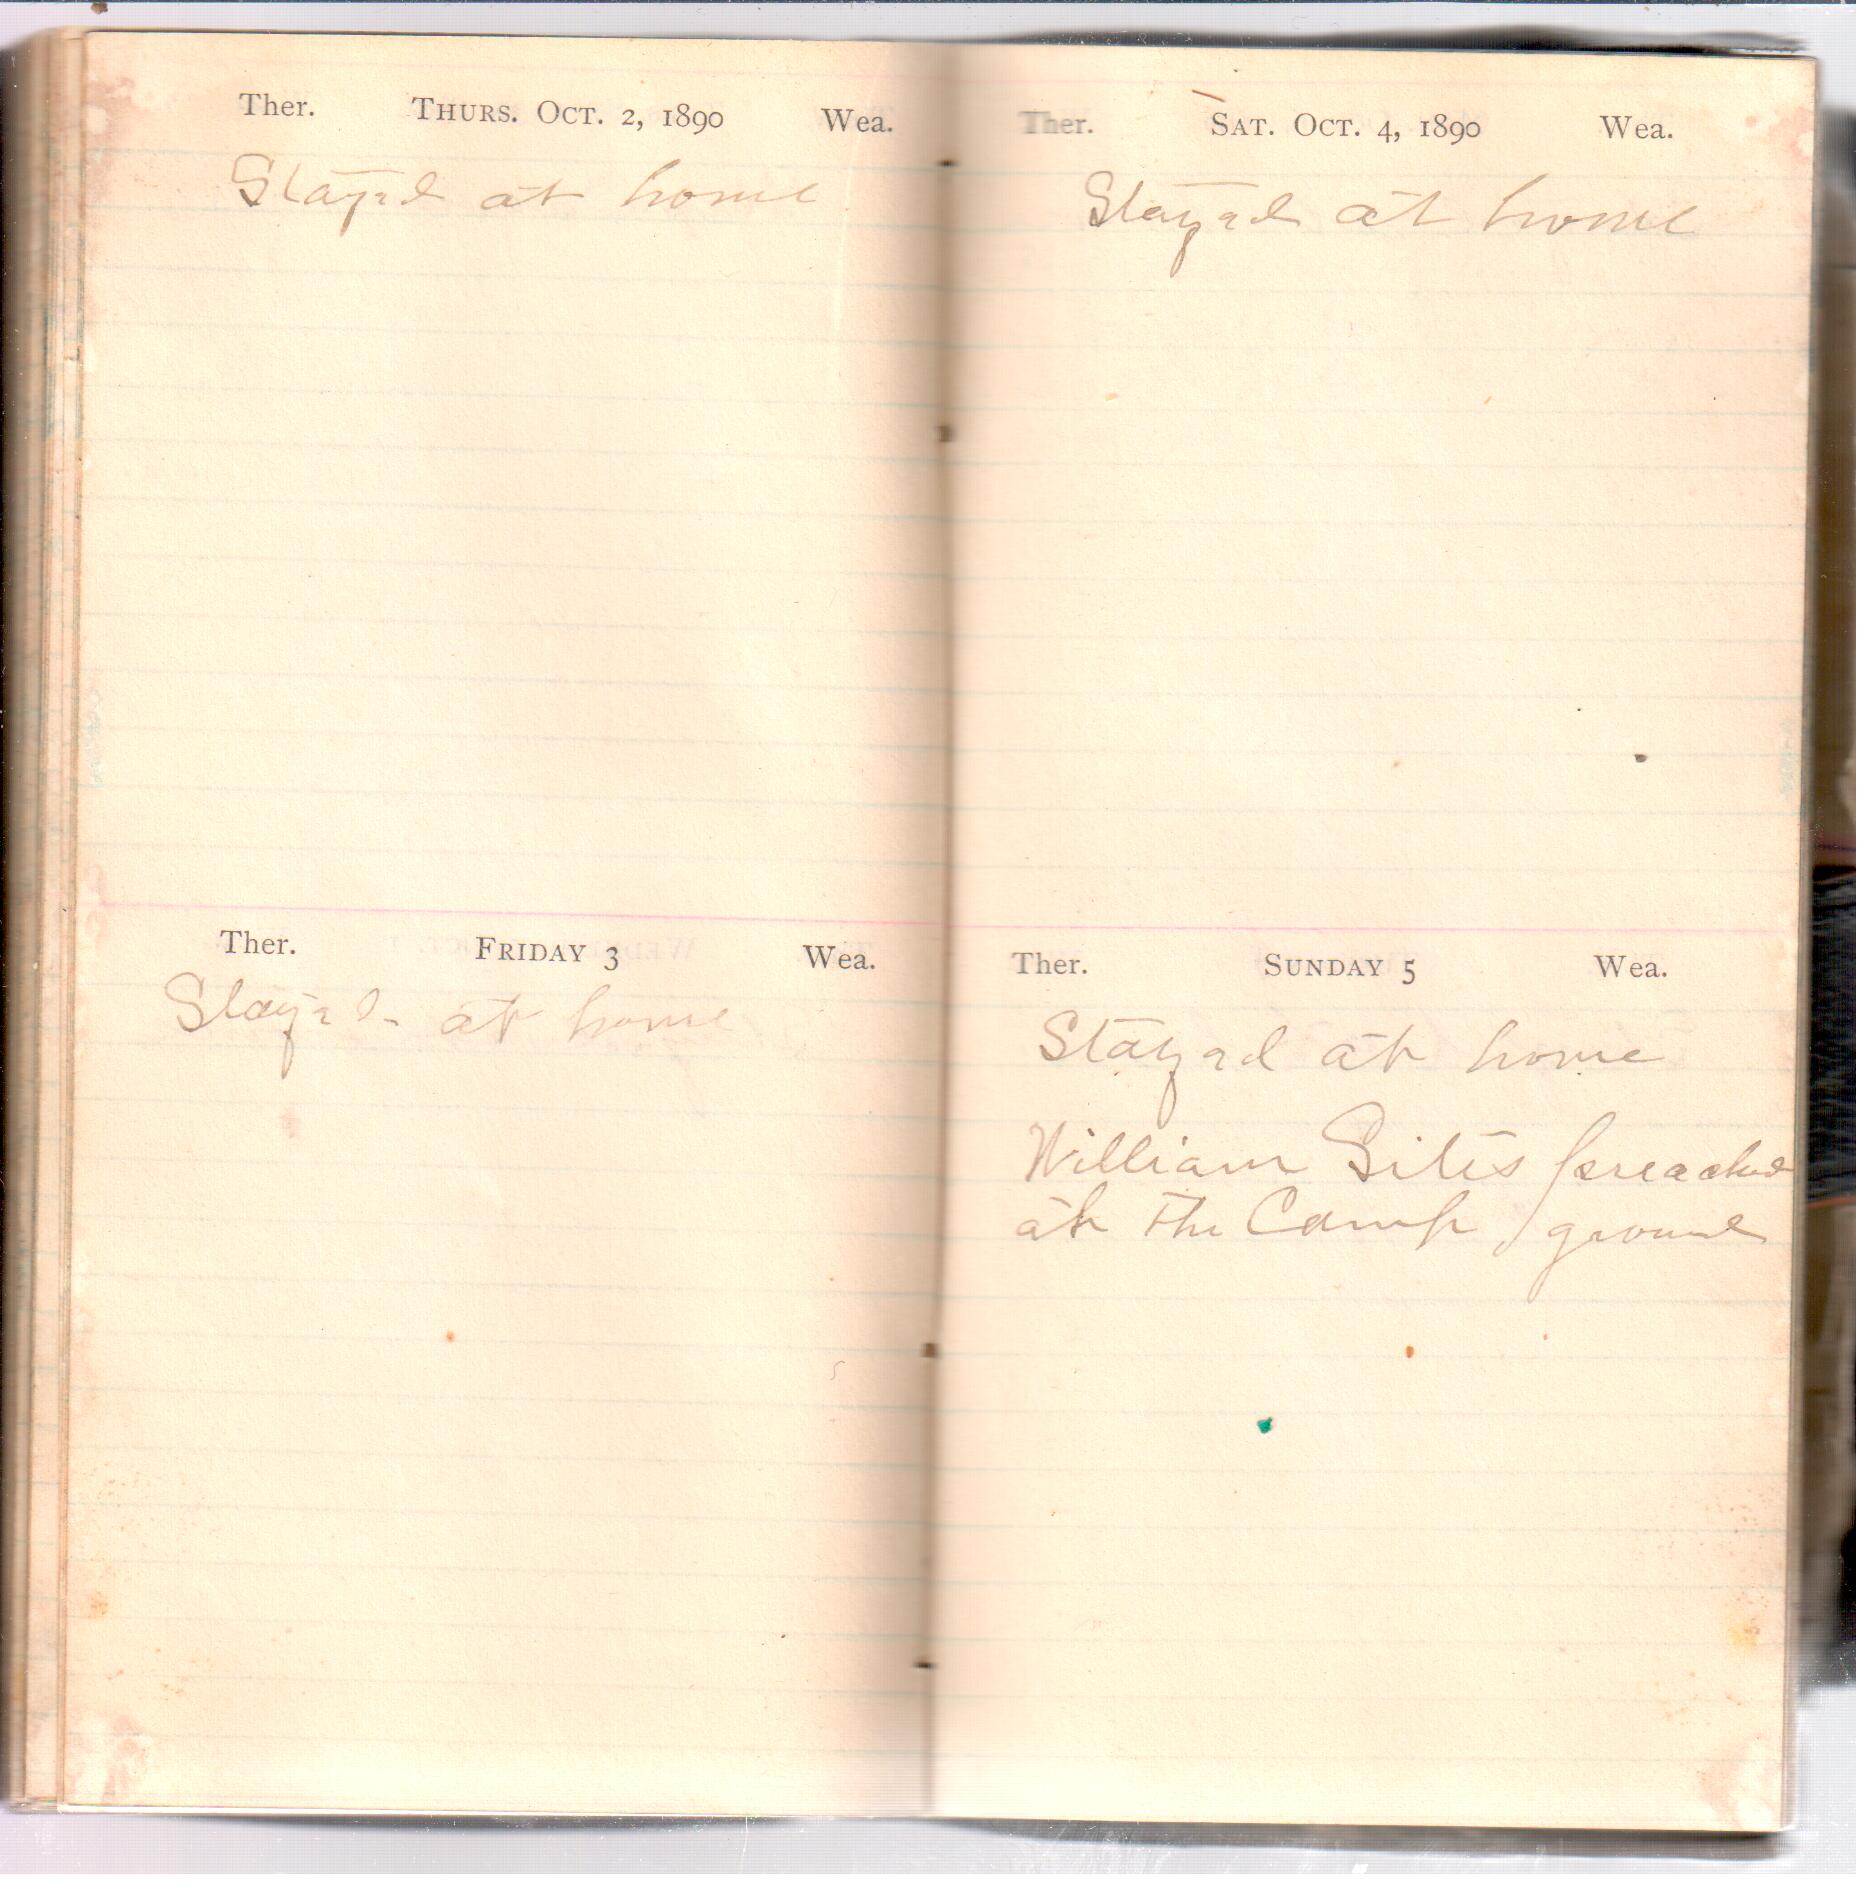 Ther. THURS. OCT. 2, 1890 Wea.
Stayed at home
Ther. FRIDAY 3 Wea.
Stayed at home
Ther. SAT. OCT. 4, 1890 Wea.
Stayed at home
Ther. SUNDAY 5 Wea.
Stayed at home
William Sites preached
at the Camp ground